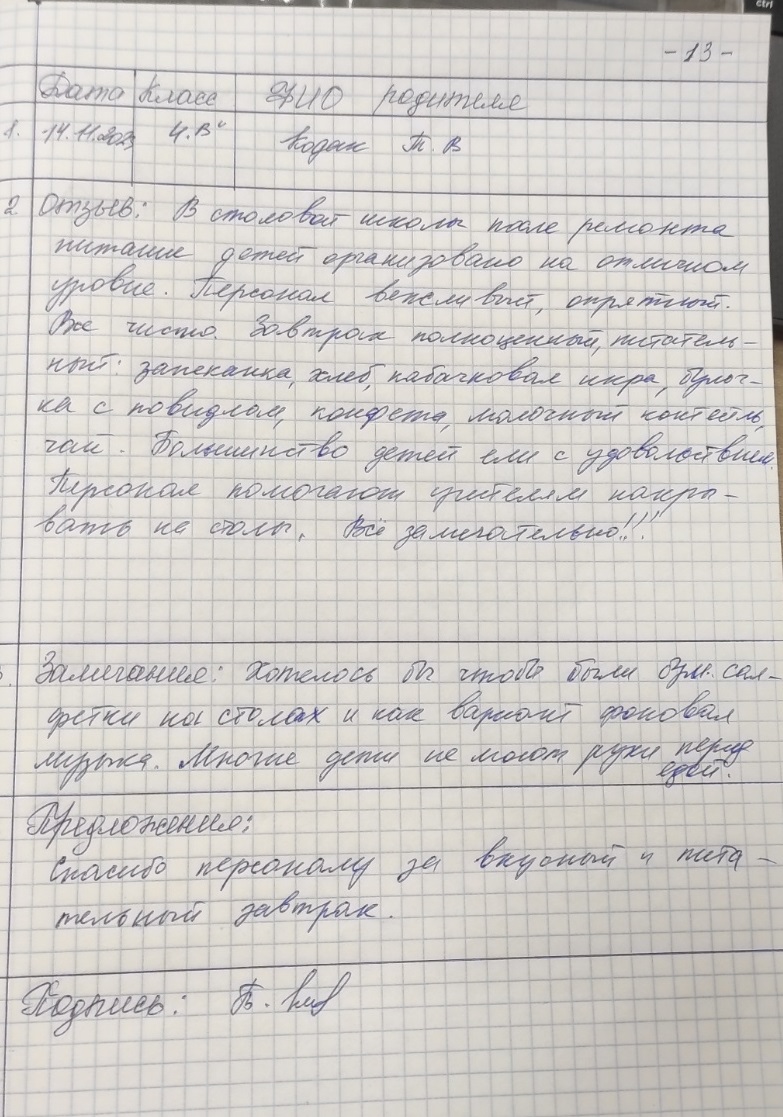 - 13 -
Дата Класс ФИО родителя
1. 14.11.2023 4"В" Кодак Т. В
2. Отзыв: В столовой школы после ремонта
питание детей организовано на отличном
уровне. Персонал вежливый, опрятный.
Все чисто. Завтрак полноценный, питатель-
ный: запеканка, хлеб, кабачковая икра, булоч-
ка с повидлом, конфета, молочный коктейль,
чай. Большинство детей ели с удовольствием.
Персонал помогают учителям накры-
вать на столы. Всё замечательно!!!
Замечания: Хотелось бы чтобы были бум. сал-
фетки на столах и как вариант фоновая
музыка. Многие дети не моют руки перед
едой.
Предложения:
Спасибо персоналу за вкусный и пита-
тельный завтрак.
Подпись: